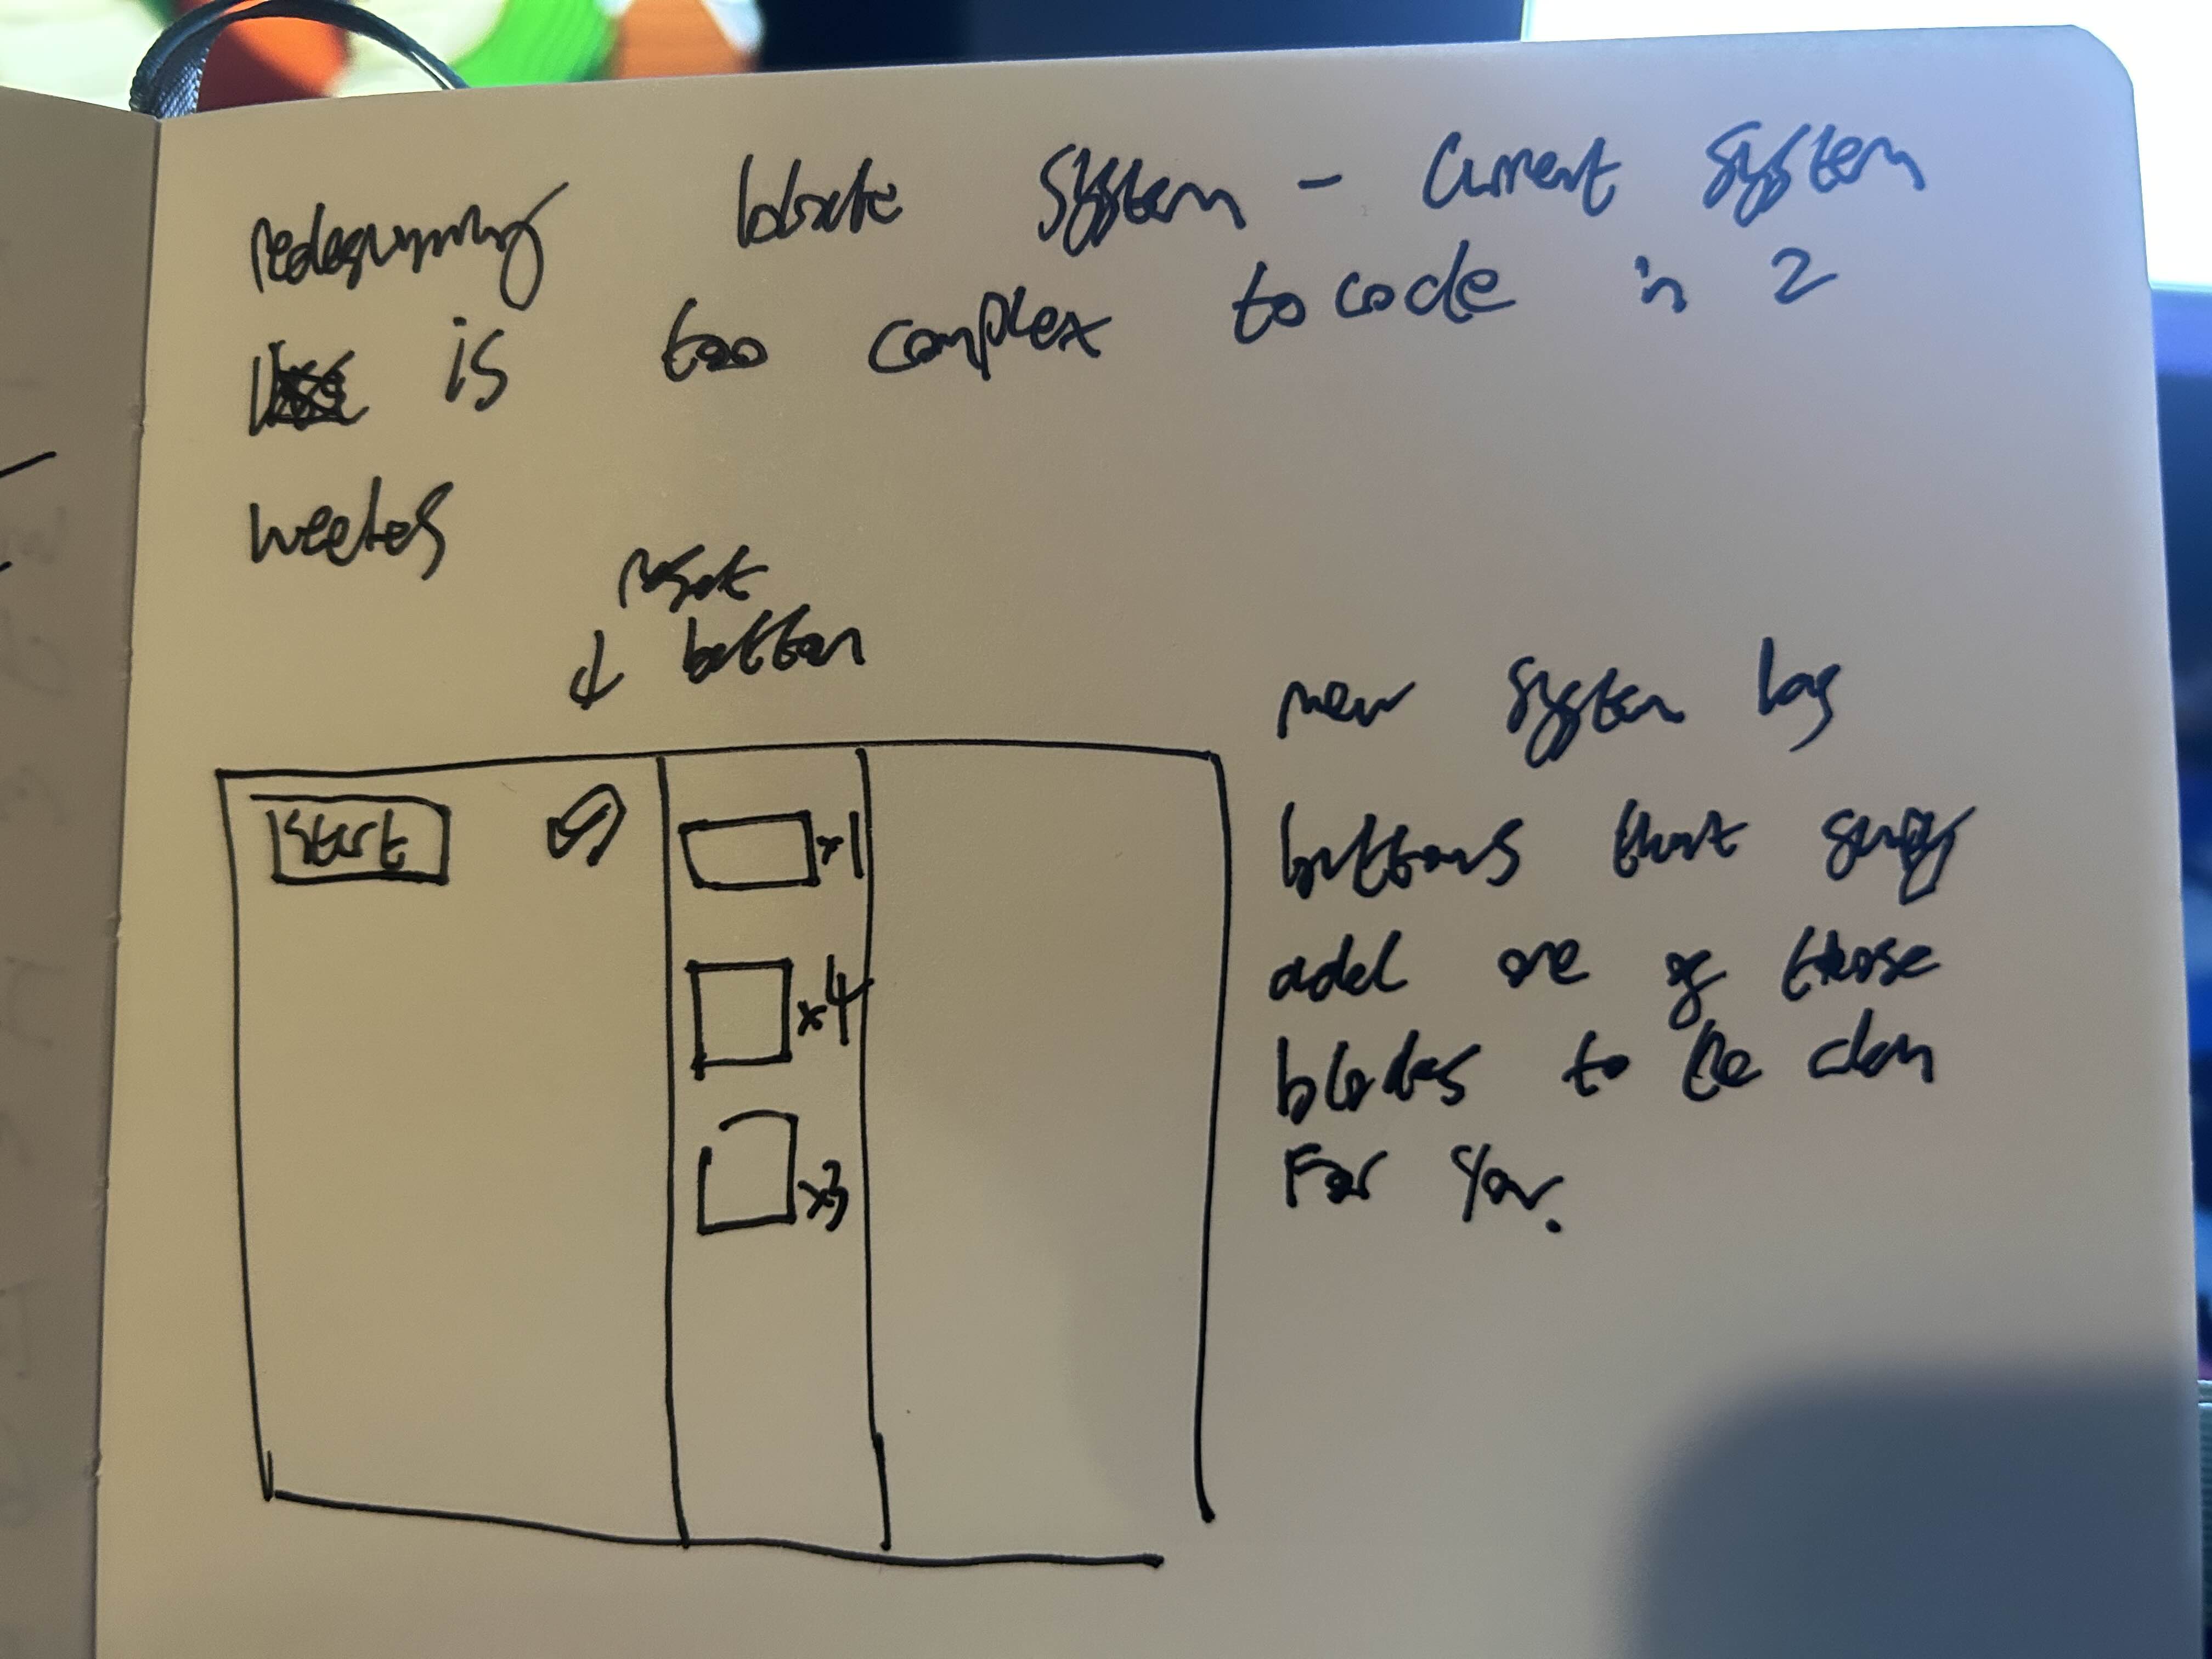 redesigning block system - current system
is too complex to code in 2
weeks
reset
button
start
x1
x4
x3
new system has
buttons that simply
add one of those
blocks to the chain
For you.